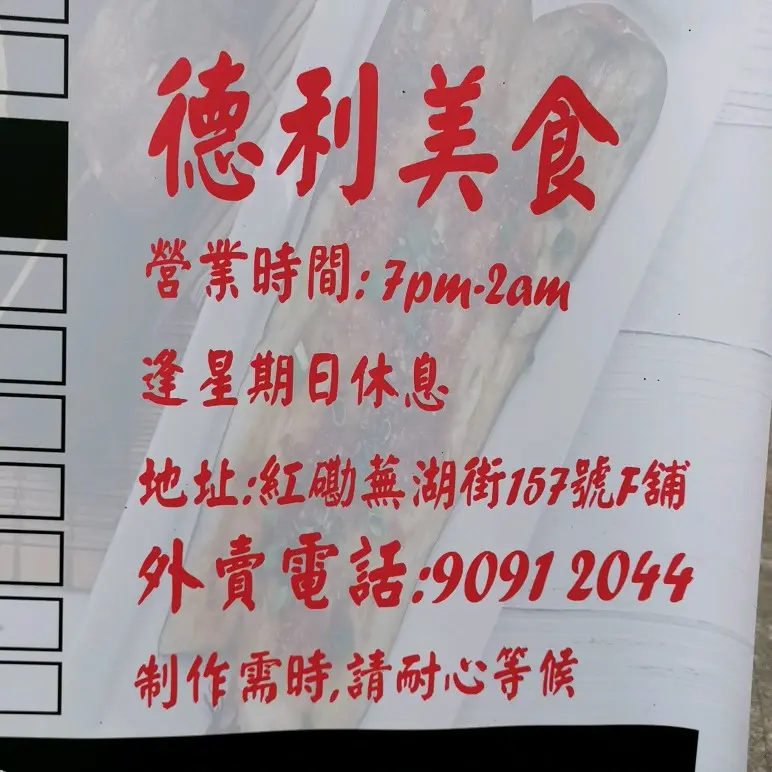 德利美食
營業時間: 7pm-2am
逢星期日休息
地址:紅磡蕪湖街157號F舖
外賣電話:9091 2044
制作需時,請耐心等候